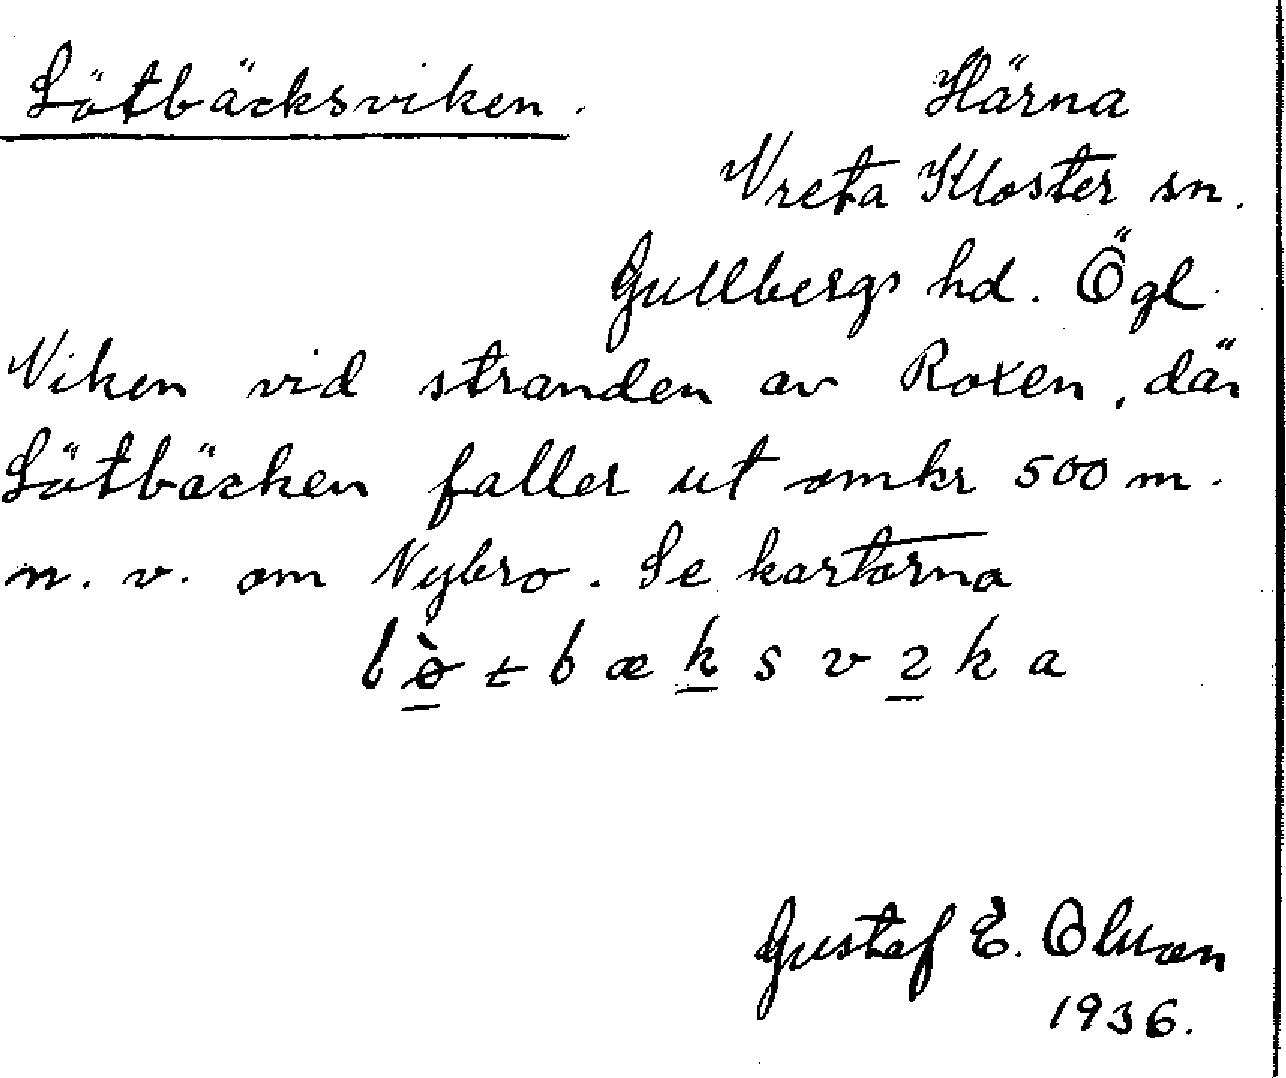 Lötbäcksviken.
Härna
Vreta Kloster sn.
Gullbergs hd. Ögl.
Viken vid stranden av Roxen, där
Lötbäcken faller ut omkr 500 m.
n. v. om Nybro. Se kartorna
Gustaf E.
1936.